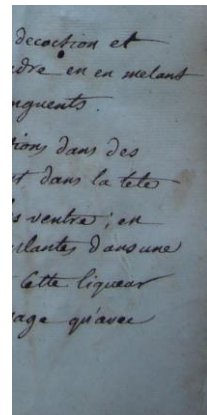 decoction et
dre en en melant
nguents.
tions dans des
t dans la tete
s ventre; en
rlantes dans une
Cette liqueur
age qu'avec